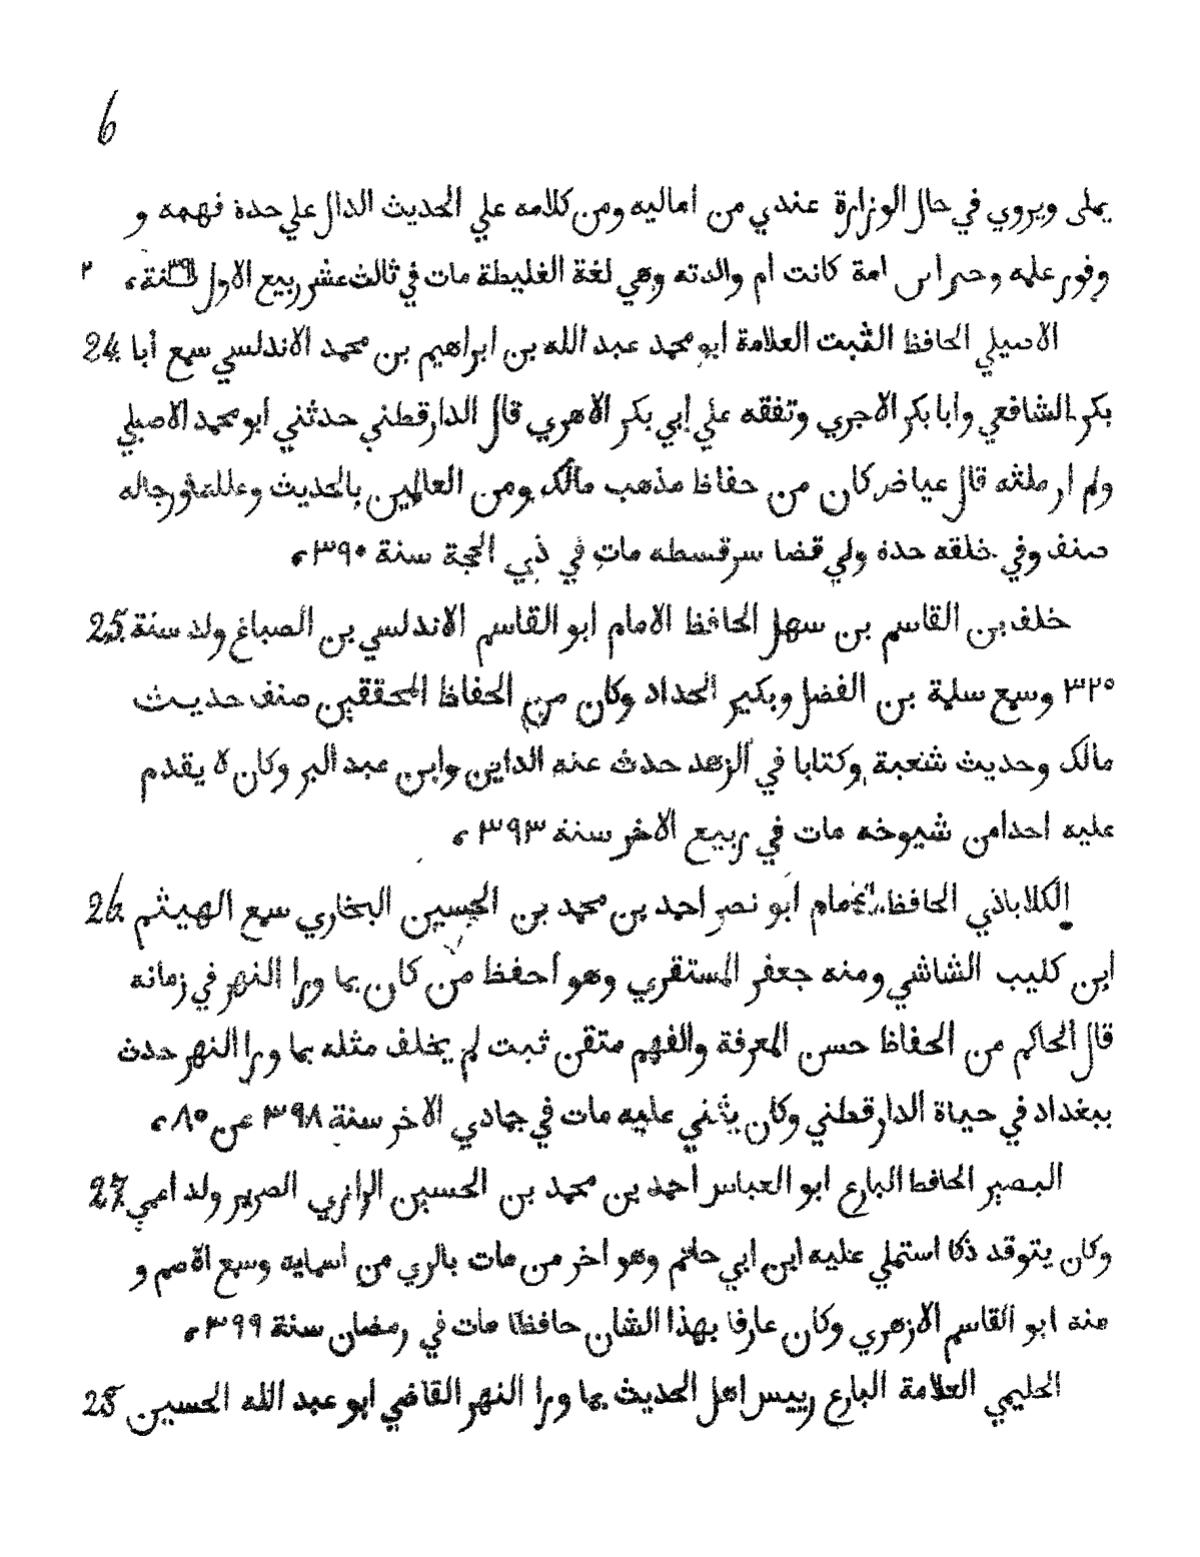 6
يملى ويروي في حال الوزارة عندي من اماليه ومن كلامه علي الحديث الدال علي حدة فهمه و
وفور علمه وحبراس امة كانت ام والدته وهي لغة الغليطة مات في ثالث عشر ربيع الاول سنة ٣٩١
الاصيلي الحافظ الثبت العلامة ابو محمد عبد الله بن ابراهيم بن محمد الاندلسي سمع ابا 24.
بكر الشافعي وابا بكر الاجري وتفقه علي ابي بكر الاهري قال الدارقطني حدثني ابو محمد الاصيلي
ولم ار مثله قال عياض كان من حفاظ مذهب مالك ومن العالمين بالحديث وعلله ورجاله
صنف وفي خلقه حدة ولي قضا سرقسطه مات في ذي الحجة سنة ٣٩٠،
خلف بن القاسم بن سهل الحافظ الامام ابو القاسم الاندلسي بن الصباغ ولد سنة 25.
٣٢٥ وسمع سلمة بن الفضل وبكير الحداد وكان من الحفاظ المحققين صنف حديث
مالك وحديث شعبة وكتابا في الزهد حدث عنه الداين وابن عبد البر وكان لا يقدم
عليه احدا من شيوخه مات في ربيع الاخر سنة ٣٩٣،
الكلاباذي الحافظ ابو نصر احمد بن محمد بن الحسين البخاري سمع الهيثم 26.
ابن كليب الشاشي ومنه جعفر المستقري وهو احفظ من كان بما ورا النهر في زمانه
قال الحاكم من الحفاظ حسن المعرفة والفهم متقن ثبت لم يخلف مثله بما ورا النهر حدث
ببغداد في حياة الدارقطني وكان يثني عليه مات في جمادي الاخر سنة ٣٩٨ عن ٨٥،
البصير الحافط البارع ابو العباس احمد بن محمد بن الحسين الرازي الصرير ولد اعمي 27.
وكان يتوقد ذكا استملي عليه ابن ابي حاتم وهو اخر من مات بالري من اسمايه وسمع الاصم و
منه ابو القاسم الازهري وكان عارفا بهذا الشان حافظا مات في رمضان سنة ٣٩٩،
الحليمي العلامة البارع رييس اهل الحديث بما ورا النهر القاضي ابو عبد الله الحسين 28